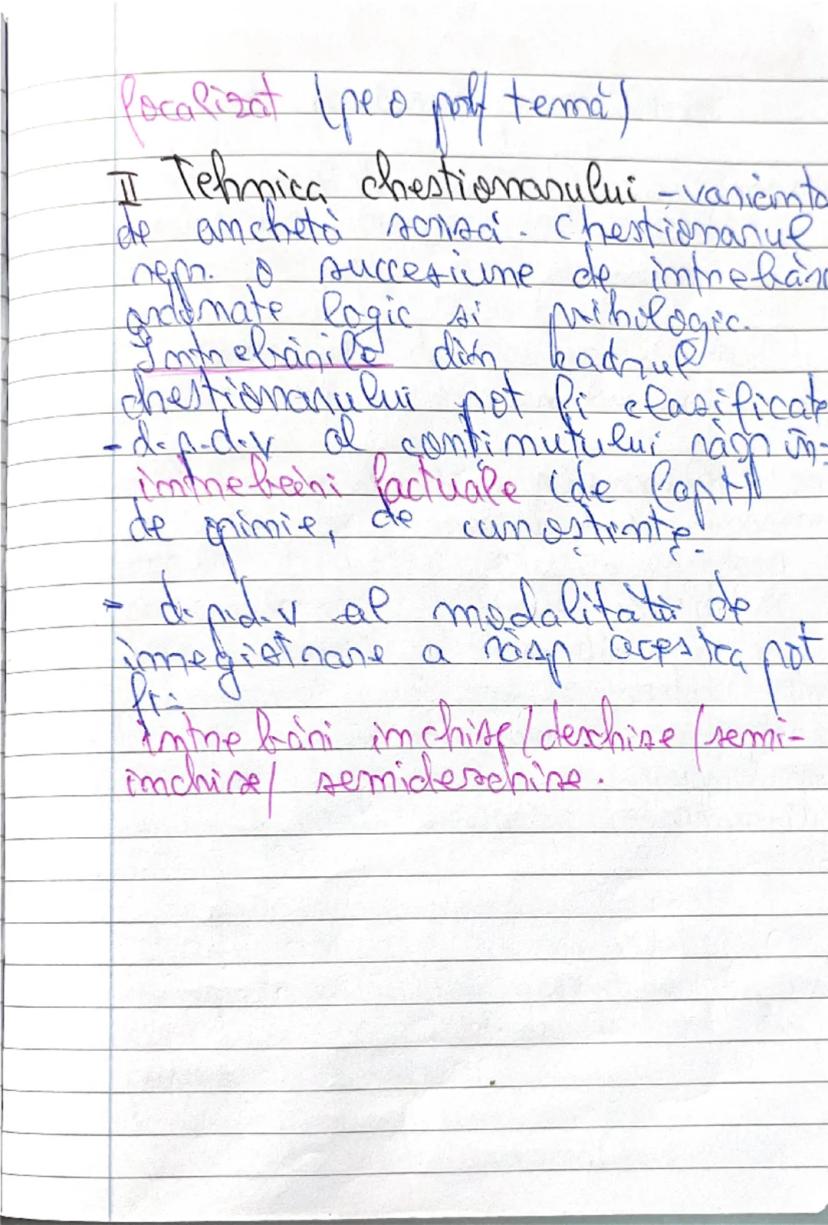 focalizat (pe o temă)
II Tehnica chestionarului - varianta
de anchetă scrisă. Chestionarul
repr. o succesiune de întrebări
ordonate logic si psihologic.
Intrebările din kadrul
chestionarului pot fi clasificate
- d.p.d.v al conținutului răsp în:
intrebări factuale (de fapt)
de opinie, de cunoștințe.
- d.p.d.v al modalitătii de
inregistrare a răsp acestea pot
fi:
intrebări inchise/deschise/semi-
inchise/ semideschise.